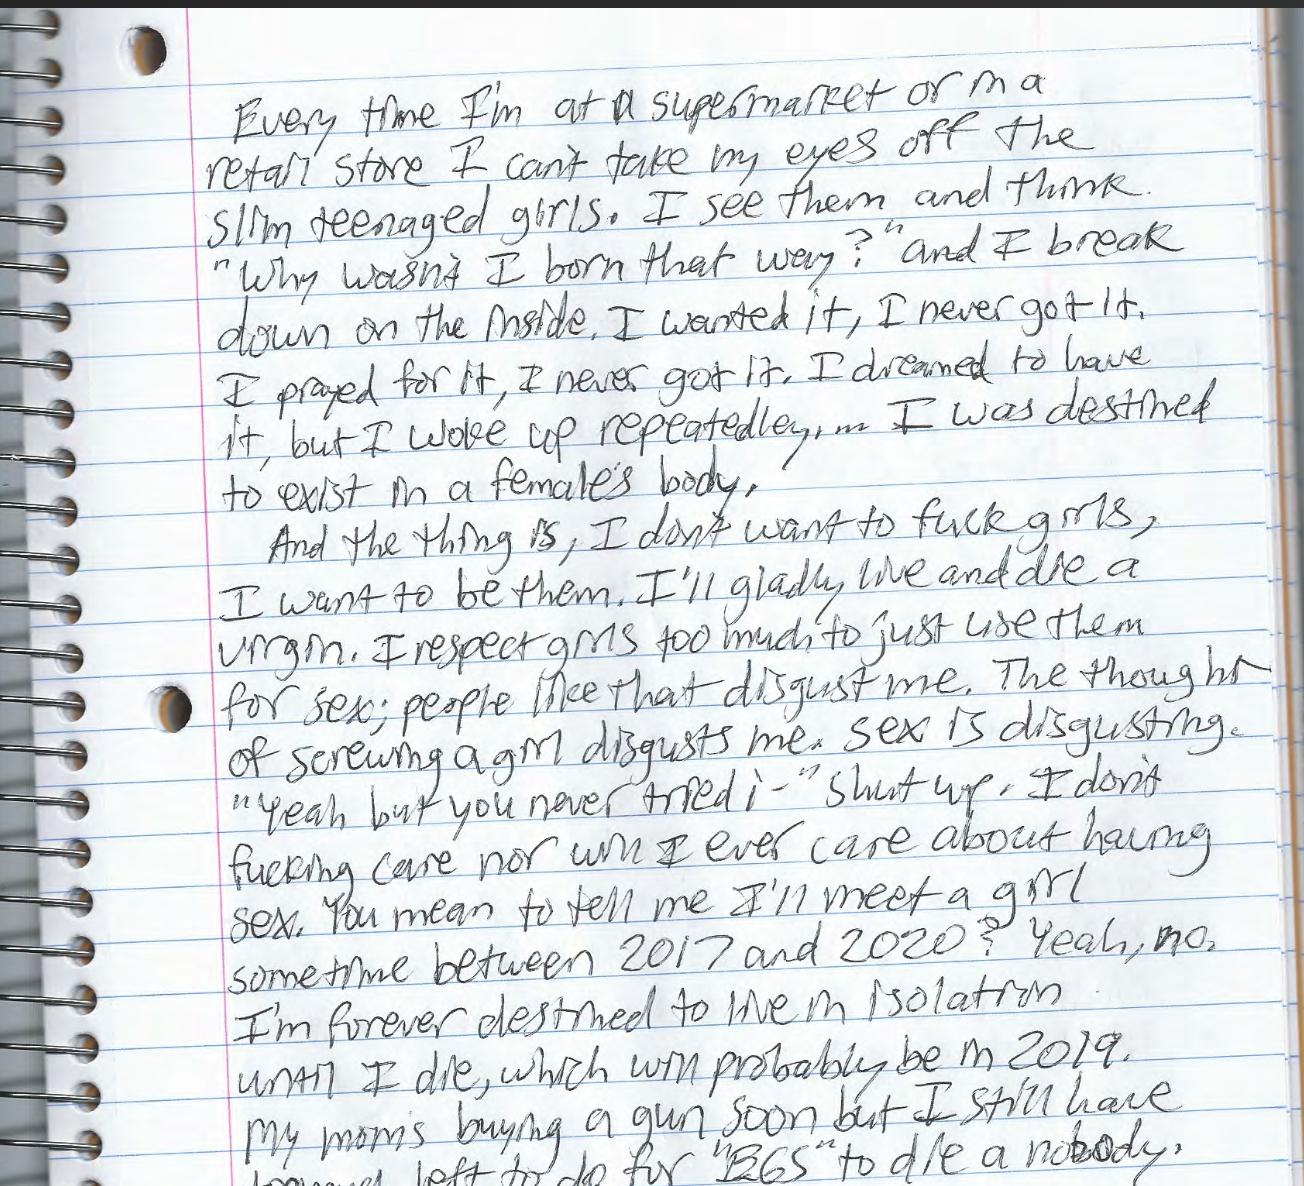 Every time I'm at a supermarket or in a
retail store I can't take my eyes off the
slim teenaged girls. I see them and think.
"Why wasn't I born that way?" and I break
down on the inside. I wanted it, I never got it.
I prayed for it, I never got it. I dreamed to have
it, but I woke up repeatedley,... I was destined
to exist in a female's body.
And the thing is, I don't want to fuck girls,
I want to be them. I'll gladly live and die a
virgin. I respect girls too much to just use them
for sex; people like that disgust me. The thought
of screwing a girl disgusts me. Sex is disgusting.
"Yeah but you never tried i-" Shut up. I don't
fucking care nor will I ever care about having
sex. You mean to tell me I'll meet a girl
sometime between 2017 and 2020? Yeah, no.
I'm forever destined to live in isolation
until I die, which will probably be in 2019.
My mom's buying a gun soon but I still have
left to do for "EGS" to die a nobody.